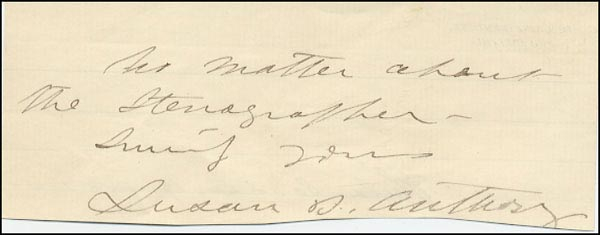 No matter about
the Stenographer –
yours
Susan B. Anthony